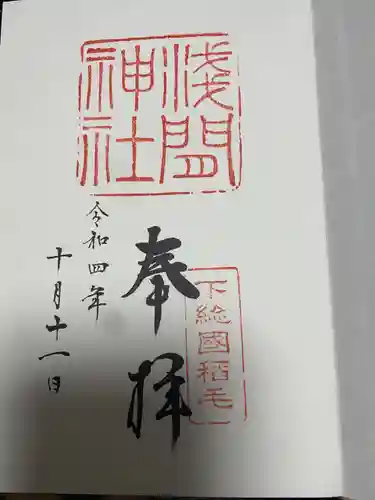 浅間
神社
奉拝
下総國稲毛
令和四年
十月十一日